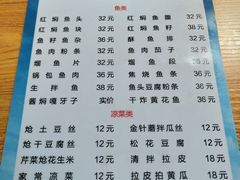 鱼类
红焖鱼头 32元 红焖鱼籽 32元
红焖鱼块 32元 红焖鱼籽 38元
鱼籽鱼杂 36元 酥鱼 32元
鱼肉粉条 32元 鱼肉茄子 32元
熘鱼片 36元 熘鱼段 36元
锅包鱼肉 36元 焦烧鱼条 36元
生拌鱼 36元 鱼头豆腐粉条 36元
酱焖嘎牙子 实价 干炸黄花鱼 36元
凉菜类
炝土豆丝 12元 金针蘑拌瓜丝 12元
炝干豆腐丝 12元 松花豆腐 12元
芹菜炝花生米 12元 清拌拉皮 18元
家常凉菜 18元 拉皮拍黄瓜 18元